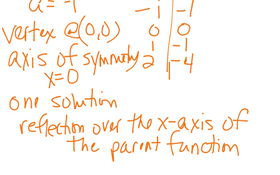 a = -1 -1 | -1
vertex @(0,0) 0 | 0
axis of symmetry 1 | -1
x=0 2 | -4
one solution
reflection over the x-axis of
the parent function